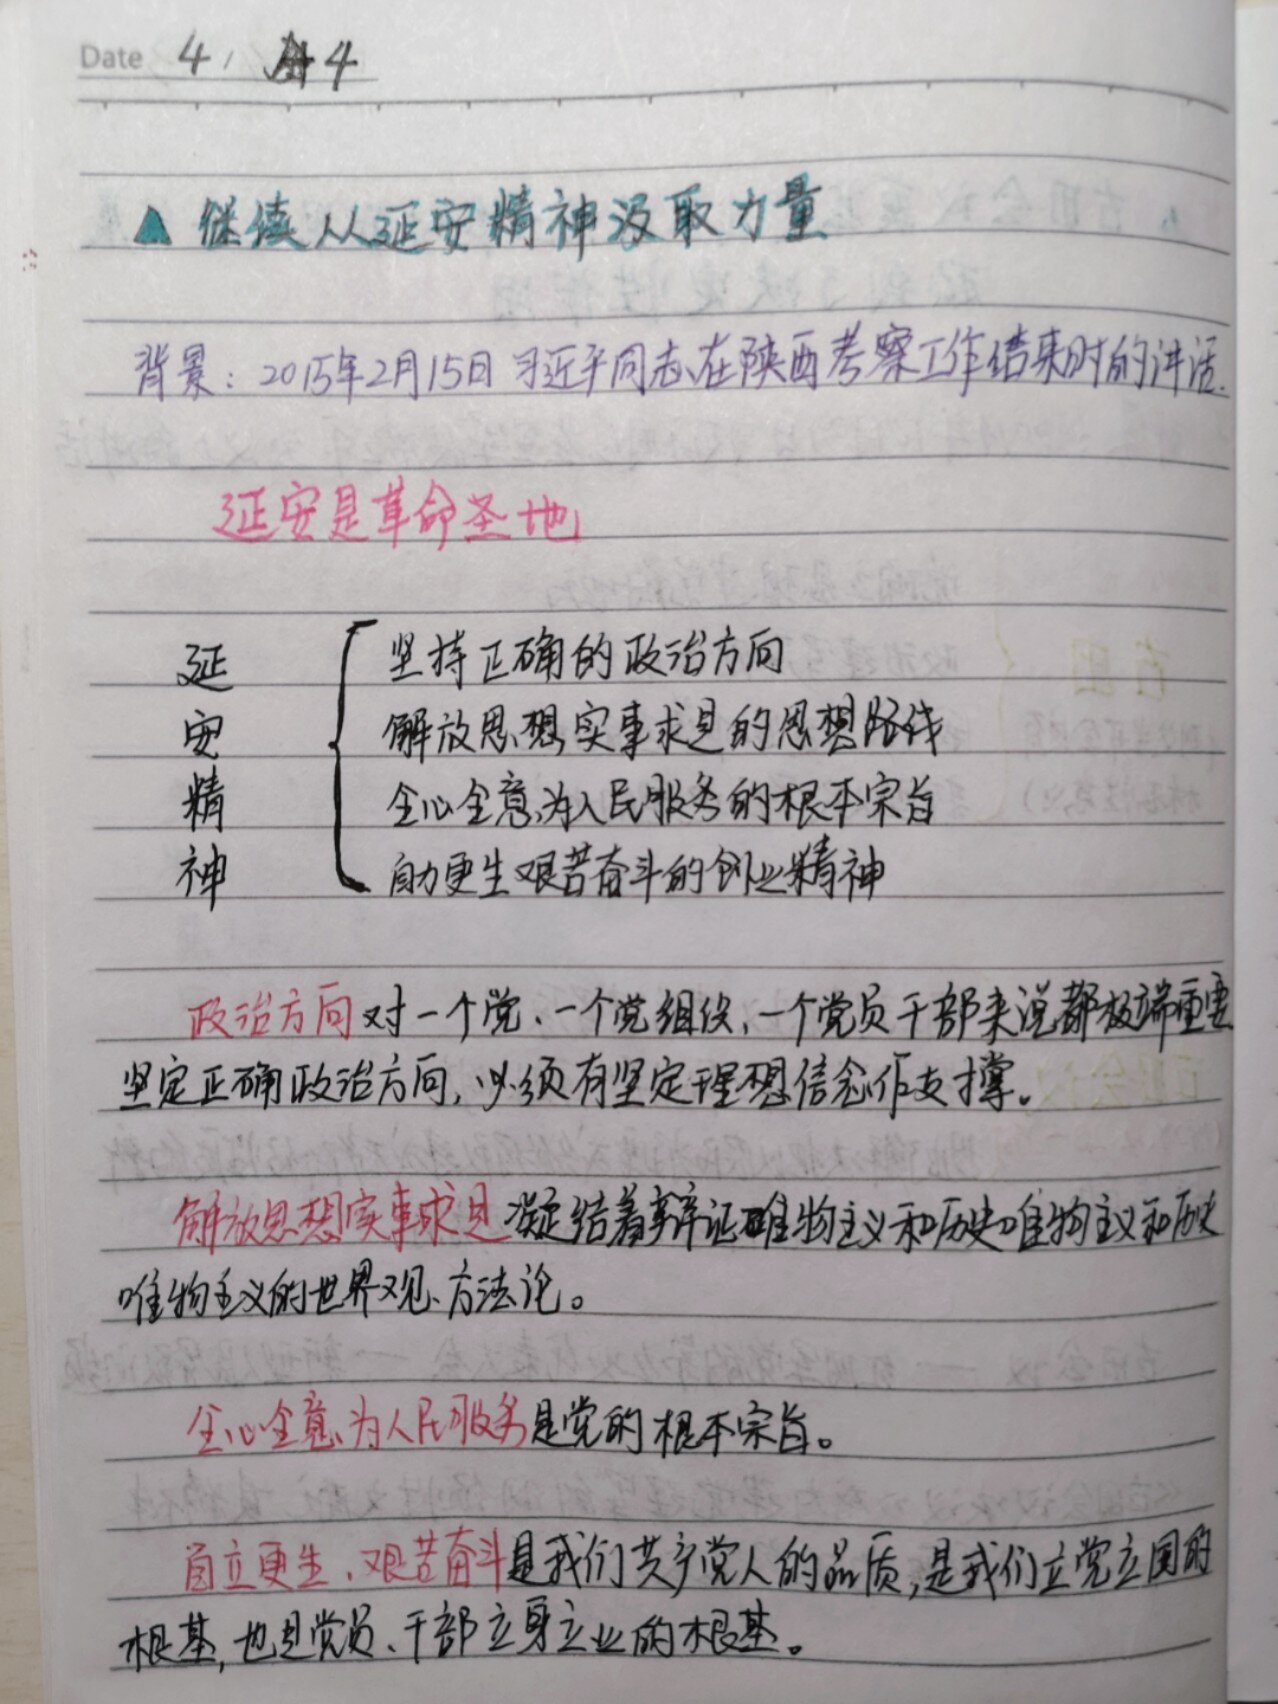 Date 4 / 4
▲ 继续从延安精神汲取力量
背景：2015年2月15日习近平同志在陕西考察工作结束时的讲话.
延安是革命圣地
延安精神
坚持正确的政治方向
解放思想实事求是的思想路线
全心全意为人民服务的根本宗旨
自力更生艰苦奋斗的创业精神
政治方向对一个党、一个党组织、一个党员干部来说都极端重要
坚定正确政治方向，必须有坚定理想信念作支撑。
解放思想实事求是凝结着辩证唯物主义和历史唯物主义和历史
唯物主义的世界观、方法论。
全心全意为人民服务是党的根本宗旨。
自立更生、艰苦奋斗是我们共产党人的品质，是我们立党立国的
根基，也是党员、干部立身立业的根基。